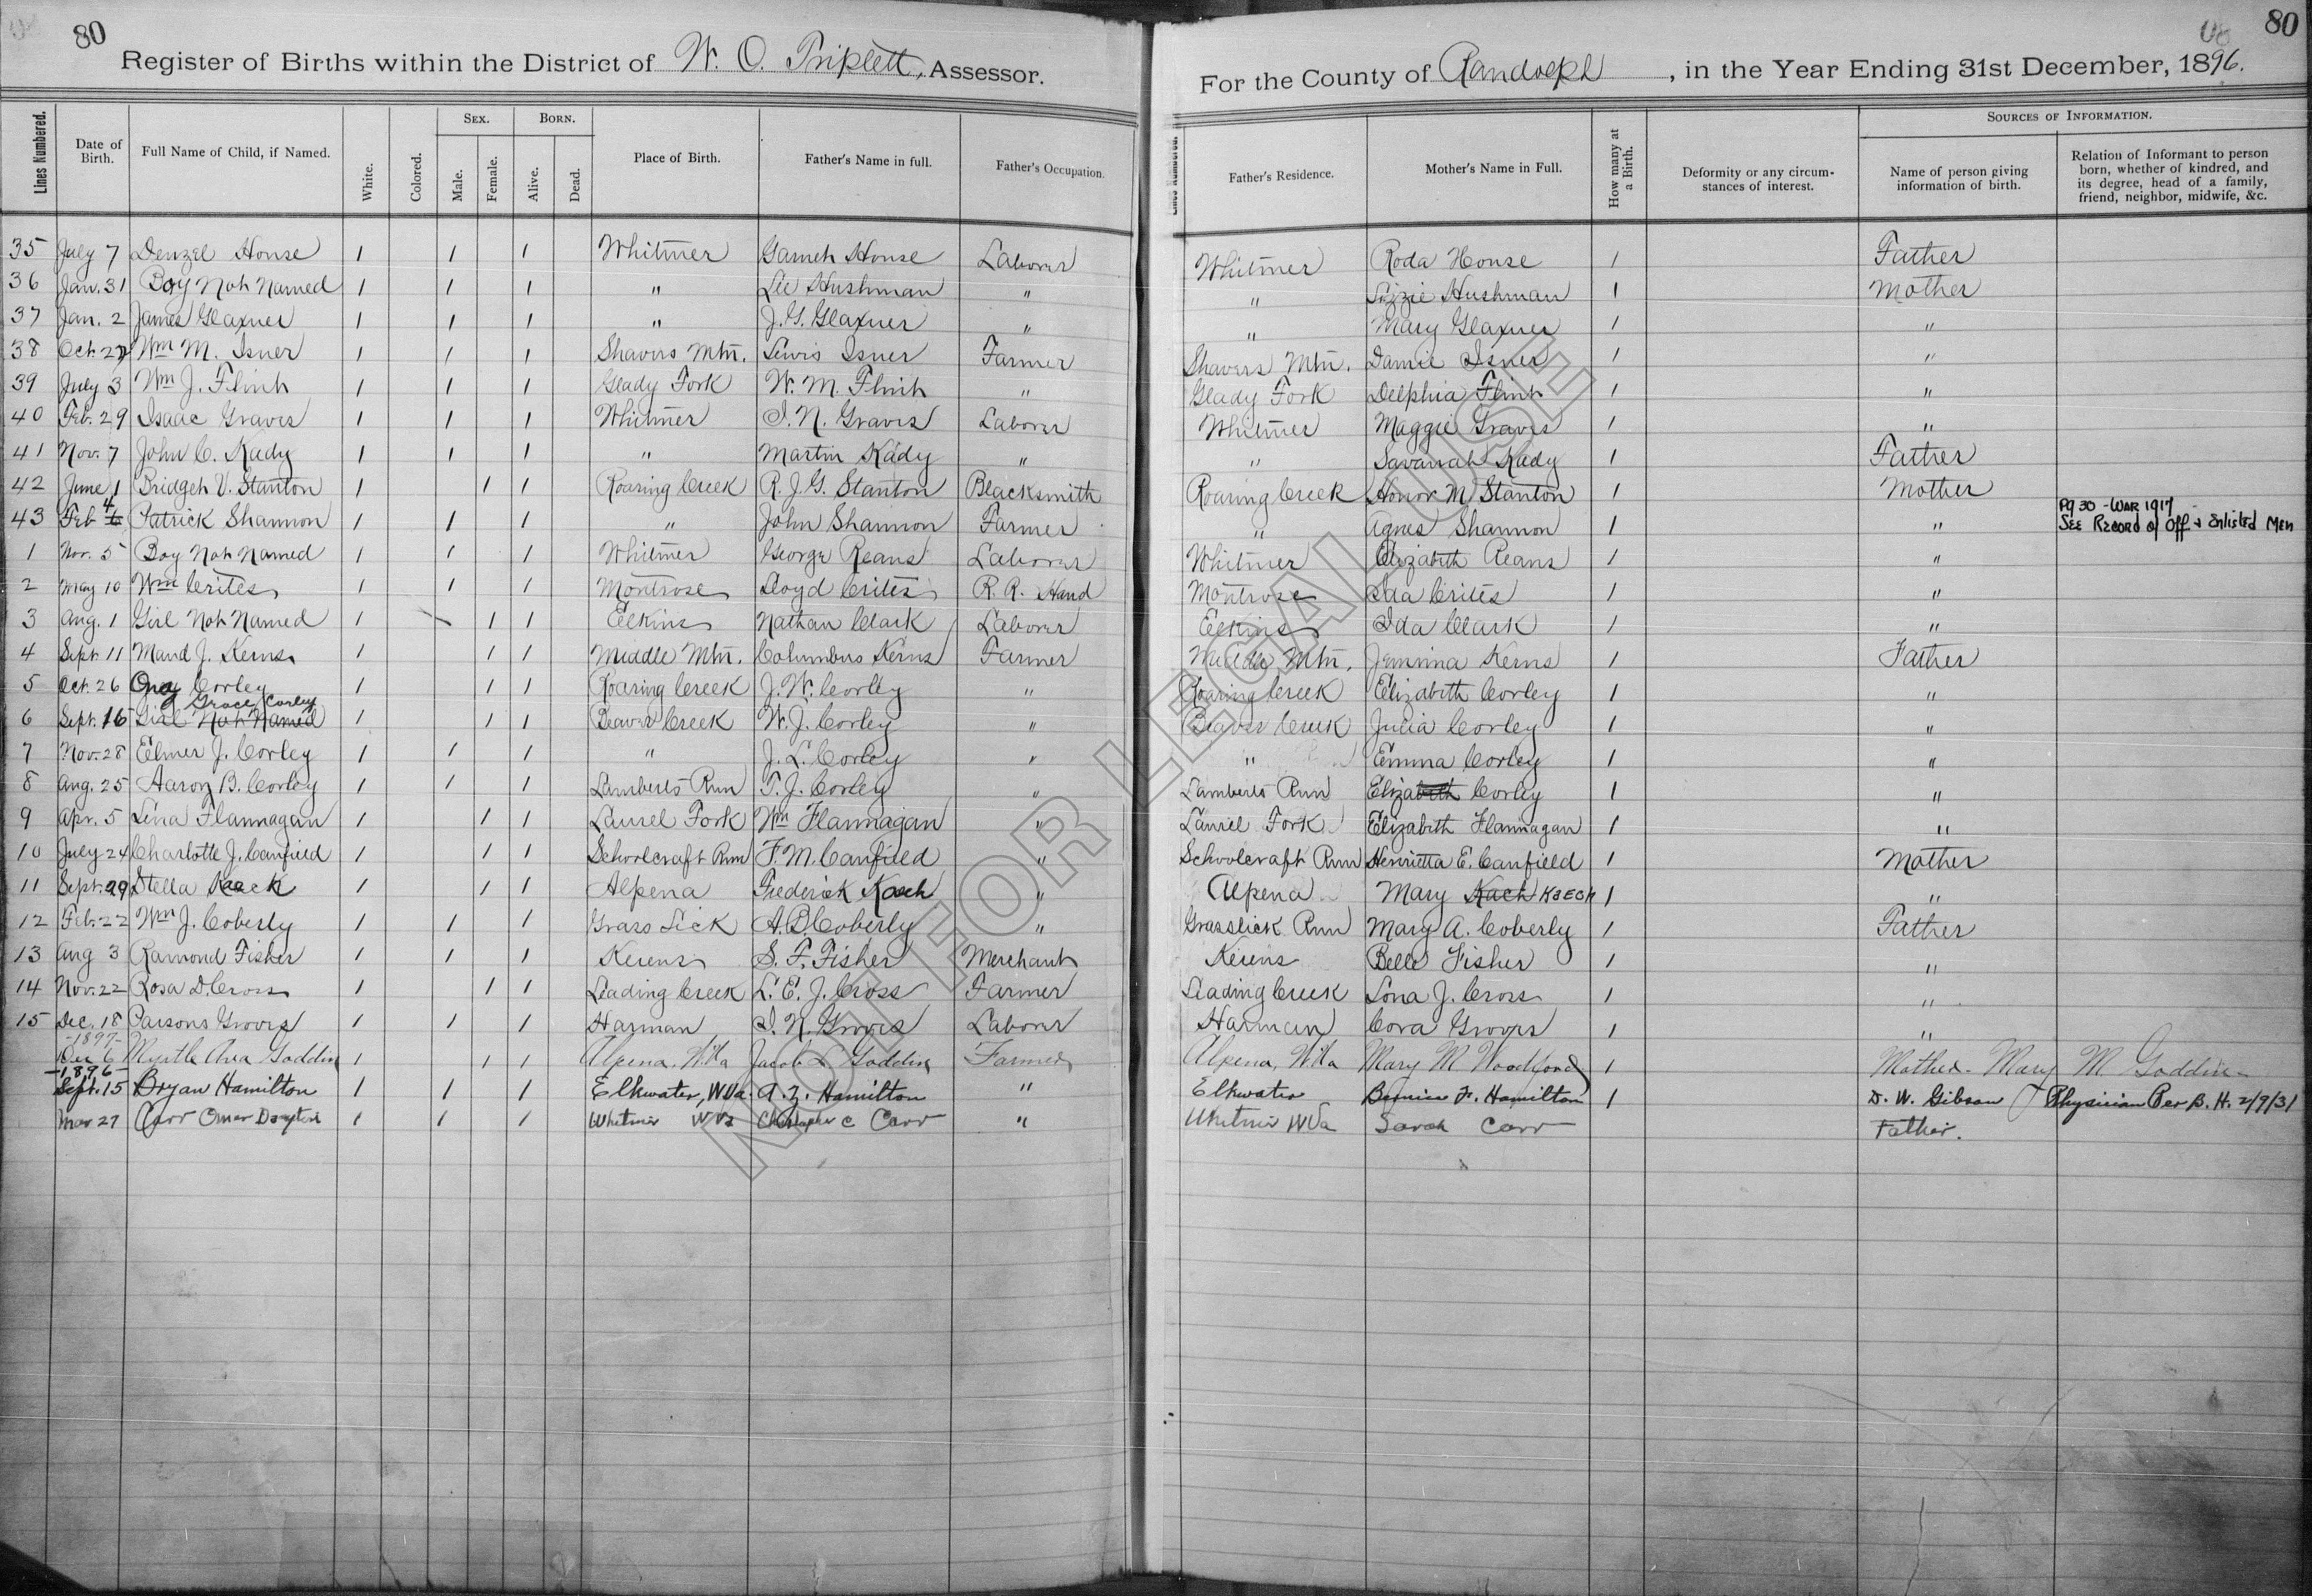 80
Register of Births within the District of W. O. Triplett, Assessor.
Lines Numbered.
Date of Birth.
Full Name of Child, if Named.
White.
Colored.
SEX.
Male.
Female.
BORN.
Alive.
Dead.
Place of Birth.
Father's Name in full.
Father's Occupation.
80
For the County of Randolph, in the Year Ending 31st December, 1896.
Father's Residence.
Mother's Name in Full.
How many at a Birth.
Deformity or any circumstances of interest.
SOURCES OF INFORMATION.
Name of person giving information of birth.
Relation of Informant to person born, whether of kindred, and its degree, head of a family, friend, neighbor, midwife, &c.
35 July 7 Denzel House 1 1 1 Whitmer House Laborer Whitmer Roda House 1 Father
36 Jan. 31 Boy Not Named 1 1 1 " Lee Hushman " " Lizie Hushman 1 Mother
37 Jan. 2 James Glaxner 1 1 1 " J. G. Glaxner " " Mary Glaxner 1 "
38 Oct. 27 Wm M. Isner 1 1 1 Shavers Mtn. Lewis Isner Farmer Shavers Mtn. Isner 1 "
39 July 3 Wm J. Flint 1 1 1 Glady Fork W. M. Flint " Glady Fork Delphia Flint 1 "
40 Feb. 29 Isaac Graves 1 1 1 Whitmer I. N. Graves Laborer Whitmer Maggie Graves 1 "
41 Nov. 7 John C. Kady 1 1 1 " Martin Kady " " Savanah Kady 1 Father
42 June 1 Bridget V. Stanton 1 1 1 Roaring Creek R. J. G. Stanton Blacksmith Roaring Creek Honor M Stanton 1 Mother
43 Feb 4 Patrick Shannon 1 1 1 " John Shannon Farmer " Agnes Shannon 1 " Pg 30 - WAR 1917 - SEE RECORD of Off & Enlisted MEN
1 Nov. 5 Boy Not Named 1 1 1 Whitmer George Reans Laborer Whitmer Elizabeth Reans 1 "
2 May 10 Wm Crites 1 1 1 Montrose Loyd Crites R. R. Hand Montrose Ida Crites 1 "
3 Aug. 1 Girl Not Named 1 1 1 Elkins Nathan Clark Laborer Elkins Ida Clark 1 "
4 Sept. 11 Maud J. Kerns 1 1 1 Middle Mtn. Columbus Kerns Farmer Middle Mtn. Jemima Kerns 1 Father
5 Oct. 26 Corley 1 1 1 Roaring Creek J. W. Corley " Roaring Creek Elizabeth Corley 1 "
Grace Corley
6 Sept. 16 Girl Not Named 1 1 1 Beaver Creek W. J. Corley " Beaver Creek Julia Corley 1 "
7 Nov. 28 Elmer J. Corley 1 1 1 " J. L. Corley " " Emma Corley 1 "
8 Aug. 25 Aaron B. Corley 1 1 1 Lamberts Run T. J. Corley " Lamberts Run Elizabeth Corley 1 "
9 Apr. 5 Lena Flannagan 1 1 1 Laurel Fork Wm Flannagan " Laurel Fork Elizabeth Flannagan 1 "
10 July 24 Charlotte J. Canfield 1 1 1 Schoolcraft Run F. M. Canfield " Schoolcraft Run Henrietta E. Canfield 1 Mother
11 Sept. 29 Stella 1 1 1 Alpena Frederick " Alpena Mary Kach 1 "
12 Feb. 22 Wm J. Coberly 1 1 1 Grass Lick A. B. Coberly " Grasslick Run Mary A. Coberly 1 Father
13 Aug 3 Ramond Fisher 1 1 1 Kerens S. F. Fisher Merchant Kerens Belle Fisher 1 "
14 Nov. 22 Rosa D. Cross 1 1 1 Leading Creek L. E. J. Cross Farmer Leading Creek Lona J. Cross 1 "
15 Dec. 18 Parsons Groves 1 1 1 Harman I. N. Groves Laborer Harman Cora Groves 1 "
-1897-
Dec 6 Myrtle Ava Goddin 1 1 1 Alpena, W.Va Jacob L Goddin Farmer Alpena, W.Va Mary M Woodford 1 Mother - Mary M Goddin
-1896-
Sept. 15 Bryan Hamilton 1 1 1 Elkwater, W.Va. A. Z. Hamilton " Elkwater F. Hamilton 1 D. W. Gibson Physician Per B. H. 2/9/31
Mar 27 Carr Omar Drayton 1 1 1 Whitmer W Va Christopher C Carr " Whitmer W Va Sarah Carr Father.
NOT FOR LEGAL USE